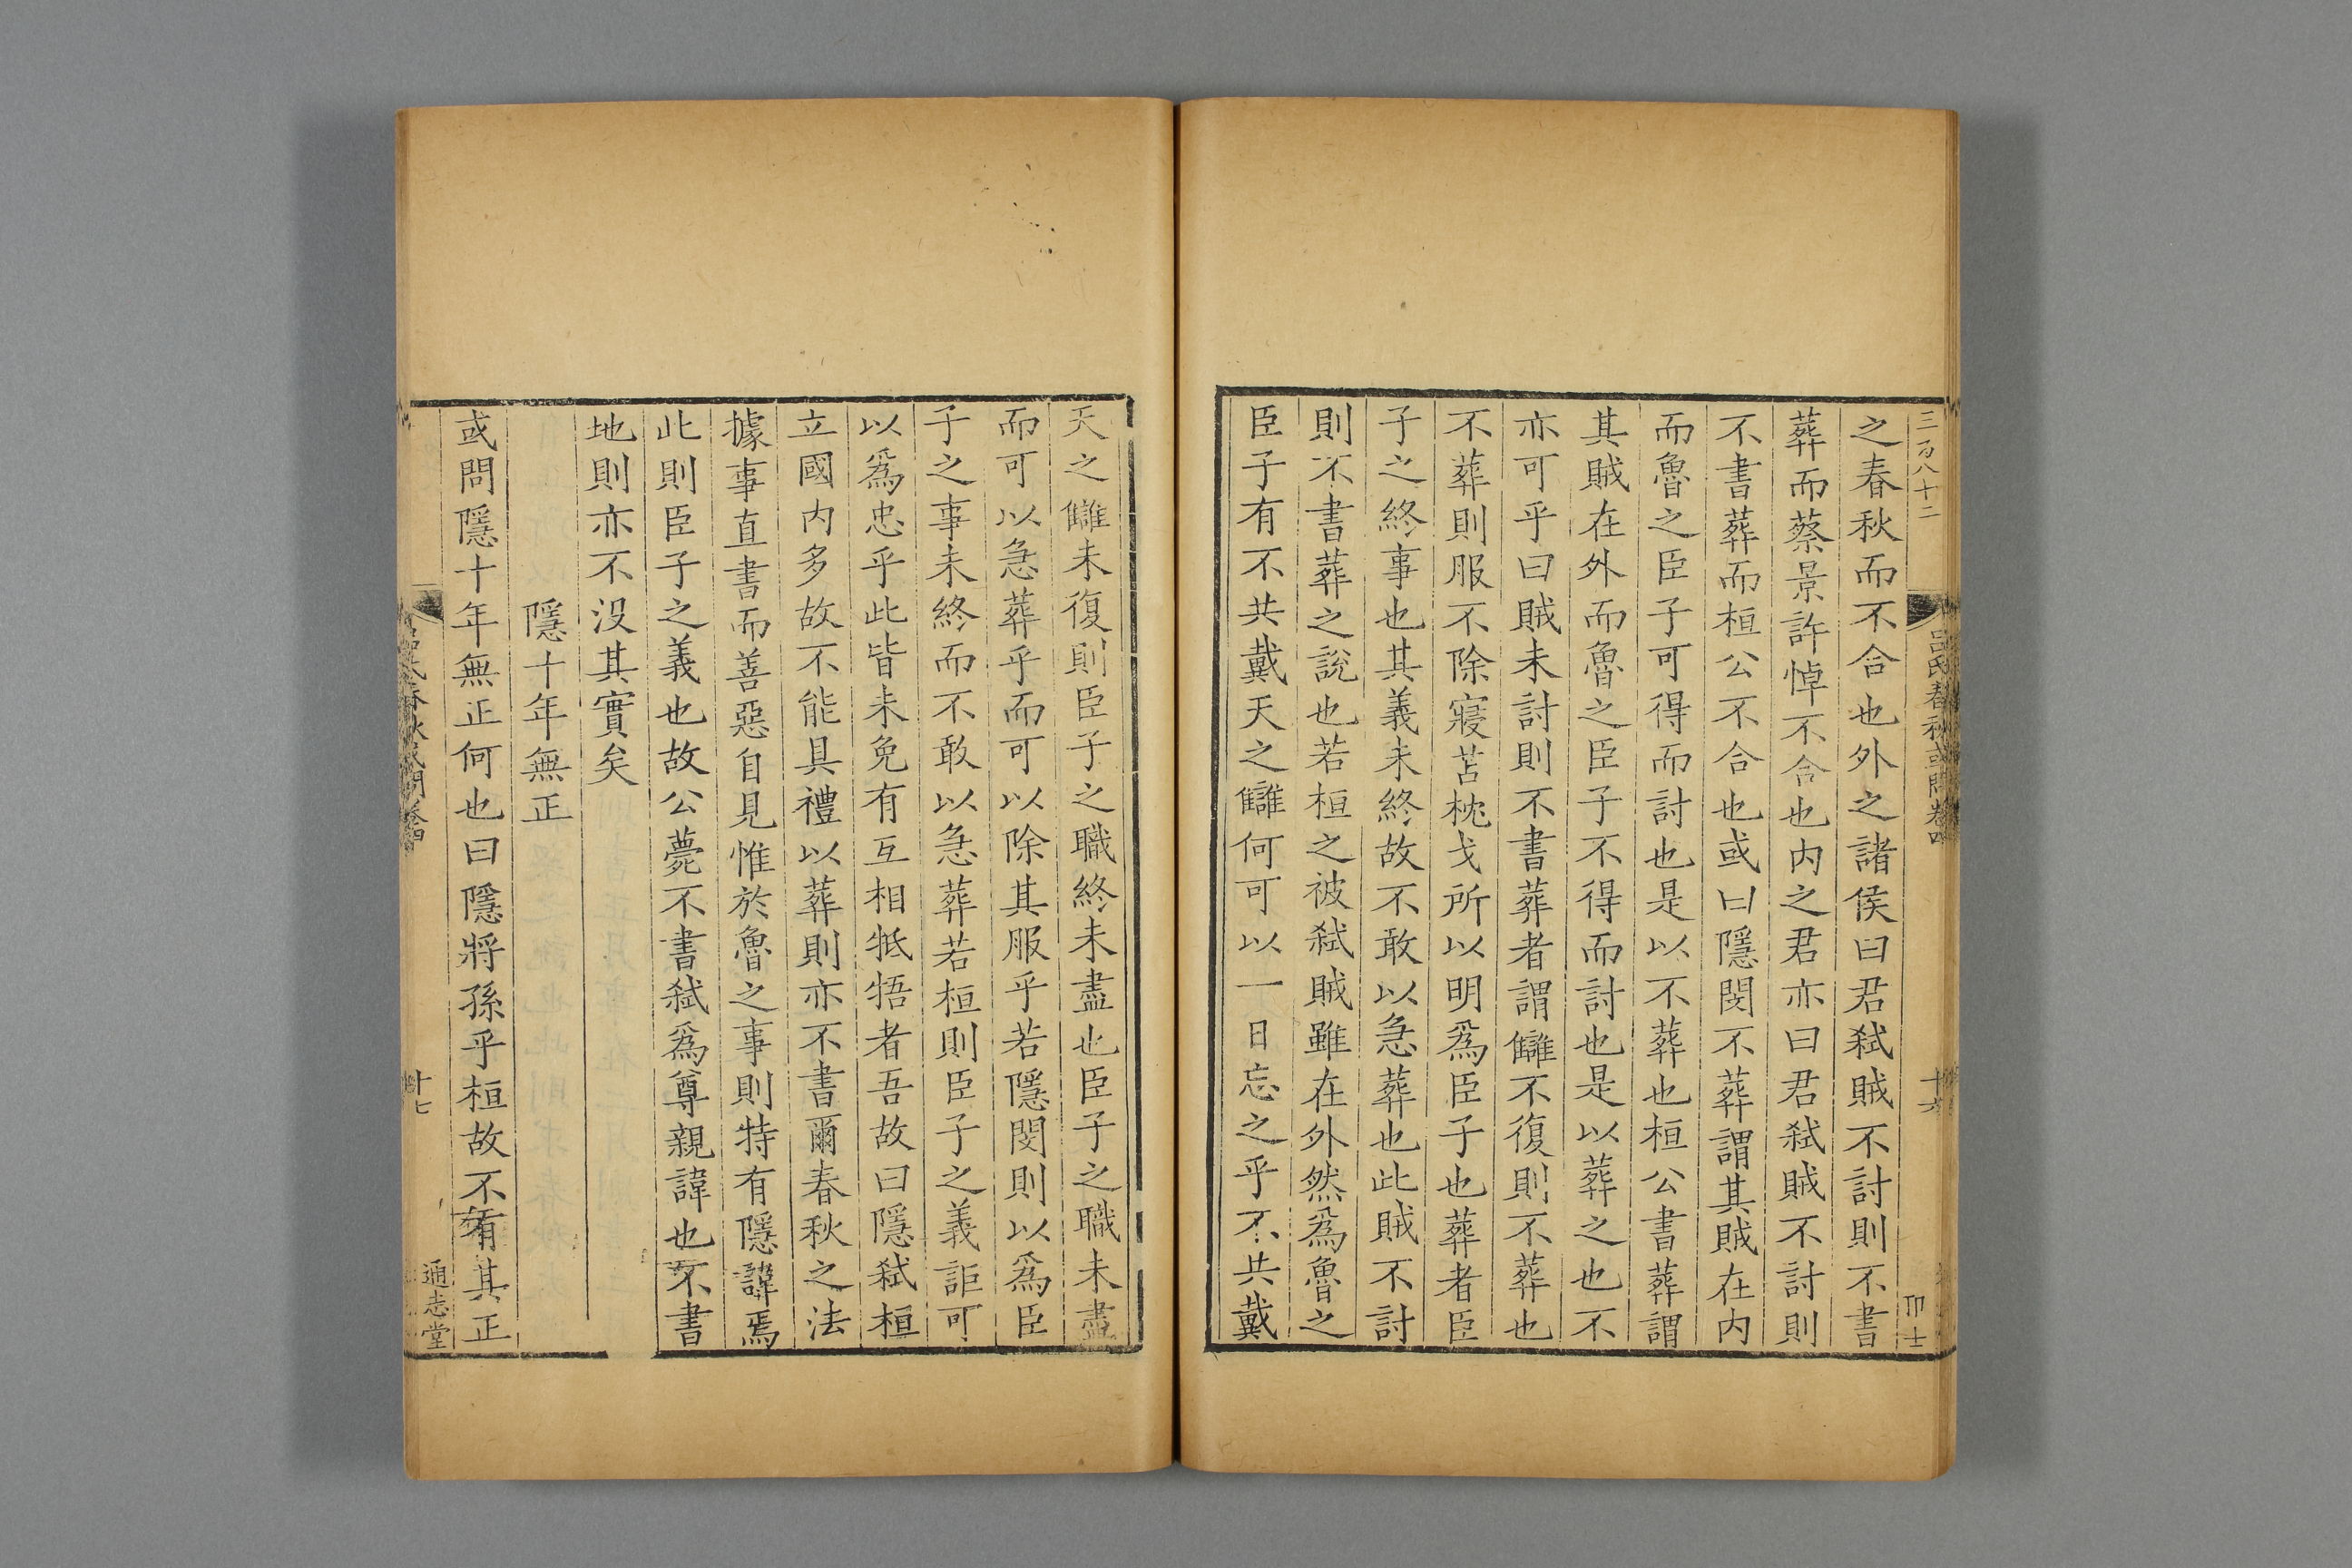 三百八十二
呂氏春秋或問卷四
十六
之春秋而不合也外之諸侯曰君弑賊不討則不書
葬而蔡景許悼不合也内之君亦曰君弑賊不討則
不書葬而桓公不合也或曰隱閔不葬謂其賊在内
而魯之臣子可得而討也是以不葬也桓公書葬謂
其賊在外而魯之臣子不得而討也是以葬之也不
亦可乎曰賊未討則不書葬者謂讎不復則不葬也
不葬則服不除寢苫枕戈所以明爲臣子也葬者臣
子之終事也其義未終故不敢以急葬也此賊不討
則不書葬之說也若桓之被弑賊雖在外然爲魯之
臣子有不共戴天之讎何可以一日忘之乎不共戴
天之讎未復則臣子之職終未盡也臣子之職未盡
而可以急葬乎而可以除其服乎若隱閔則以爲臣
子之事未終而不敢以急葬若桓則臣子之義詎可
以爲忠乎此皆未免有互相牴牾者吾故曰隱弑桓
立國内多故不能具禮以葬則亦不書爾春秋之法
據事直書而善惡自見惟於魯之事則特有隱諱焉
此則臣子之義也故公薨不書弑爲尊親諱也不書
地則亦不没其實矣
隱十年無正
或問隱十年無正何也曰隱將孫乎桓故不有其正
呂氏春秋或問卷四
十七
通志堂